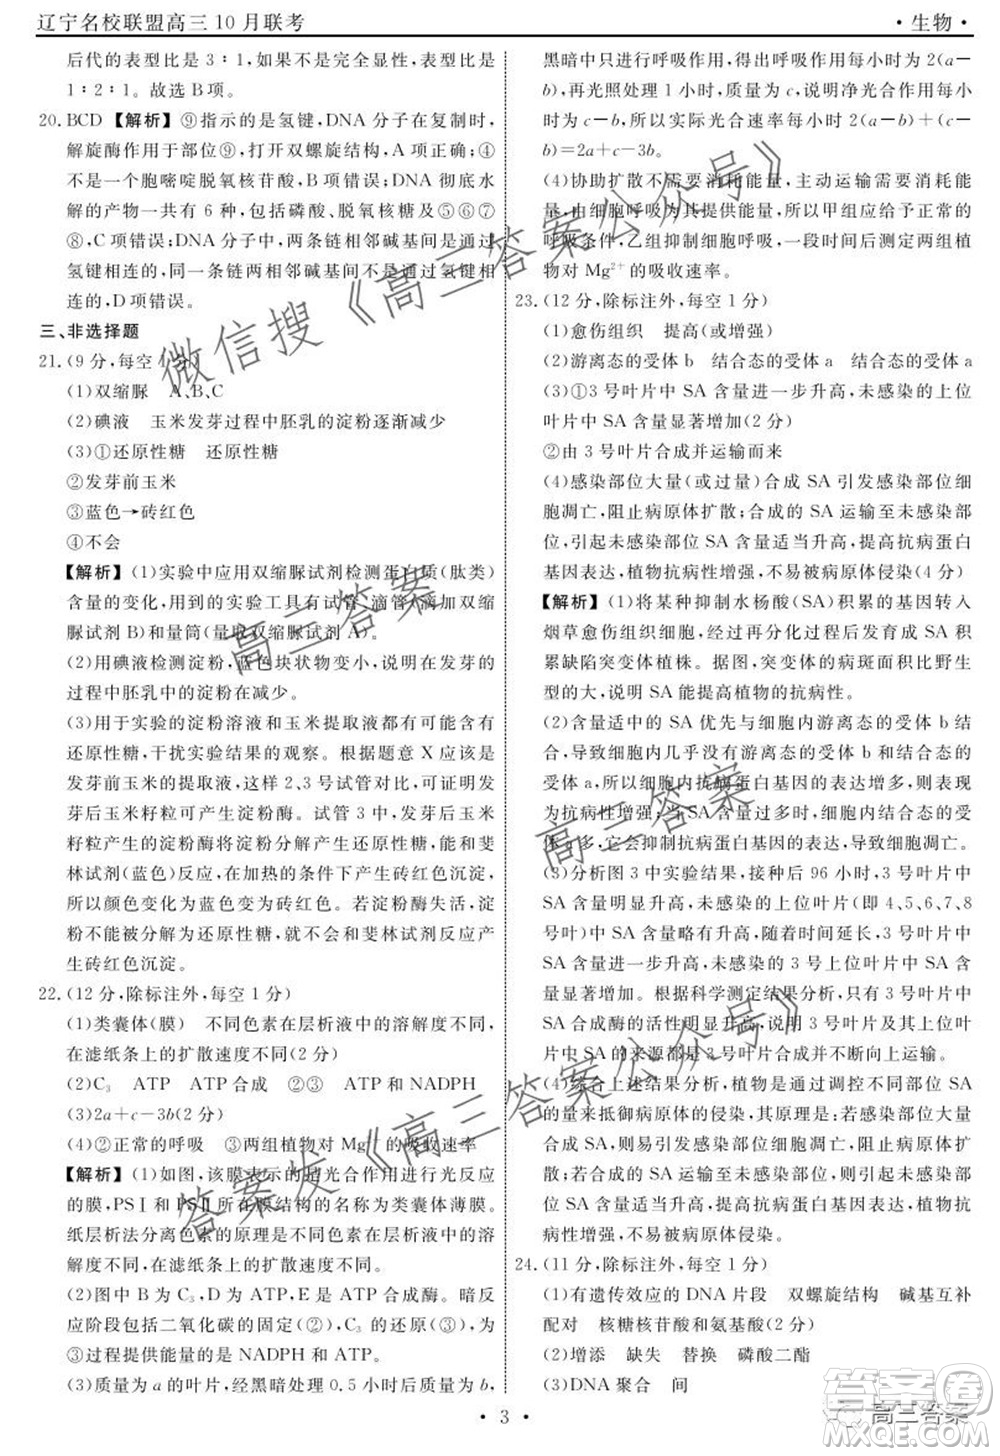 辽宁名校联盟高三10月联考
·生物·
后代的表型比是3∶1,如果不是完全显性,表型比是
1∶2∶1。故选B项。
20. BCD 【解析】⑨指示的是氢键,DNA分子在复制时,
解旋酶作用于部位⑨,打开双螺旋结构,A项正确;④
不是一个胞嘧啶脱氧核苷酸,B项错误;DNA彻底水
解的产物一共有6种,包括磷酸、脱氧核糖及⑤⑥⑦
⑧,C项错误;DNA分子中,两条链相邻碱基间是通过
氢键相连的,同一条链两相邻碱基间不是通过氢键相
连的,D项错误。
三、非选择题
21. (9分,每空1分)
(1)双缩脲 A、B、C
(2)碘液 玉米发芽过程中胚乳的淀粉逐渐减少
(3)①还原性糖 还原性糖
②发芽前玉米
③蓝色→砖红色
④不会
【解析】(1)实验中应用双缩脲试剂检测蛋白质(肽类)
含量的变化,用到的实验工具有试管、滴管(滴加双缩
脲试剂B)和量筒(量取双缩脲试剂A)。
(2)用碘液检测淀粉,蓝色块状物变小,说明在发芽的
过程中胚乳中的淀粉在减少。
(3)用于实验的淀粉溶液和玉米提取液都有可能含有
还原性糖,干扰实验结果的观察。根据题意X应该是
发芽前玉米的提取液,这样2、3号试管对比,可证明
发芽后玉米籽粒可产生淀粉酶。试管3中,发芽玉米
籽粒产生的淀粉酶将淀粉分解成还原性糖,其能与斐
林试剂(蓝色)反应,在加热的条件下产生砖红色沉淀,
所以颜色变化为蓝色变为砖红色。若淀粉酶失活,则
淀粉不能被分解为还原性糖,就不会和斐林试剂反应产
生砖红色沉淀。
22. (12分,除标注外,每空1分)
(1)类囊体(膜) 不同色素在层析液中的溶解度不同,
在滤纸条上的扩散速度不同(2分)
(2)C₃ ATP ATP合成 ②③ ATP和NADPH
(3)2a+c-3b(2分)
(4)②正常的呼吸 ③两组植物对Mg²⁺的吸收速率
【解析】(1)如图,该膜表示的是光合作用进行光反应
的膜,PSⅠ和PSⅡ所在膜结构的名称是类囊体(膜)。
纸层析法分离色素的原理是不同色素在层析液中的溶
解度不同,在滤纸条上的扩散速度不同。
(2)图中B为C₃,D为ATP,E为ATP合成酶。暗反
应阶段包括二氧化碳的固定(②)、C₃的还原(③),为③
过程提供能量的是NADPH和ATP。
(3)质量为a的叶片,经黑暗处理0.5小时后质量为b,
黑暗中只进行呼吸作用,所以呼吸速率每小时为2(a-
b),再光照处理1小时,质量为c,说明净光合速率每小
时为c-b,所以实际光合速率每小时为2(a-b)+(c-
b)=2a+c-3b。
(4)协助扩散不需要消耗能量,主动运输需要消耗能
量,由细胞呼吸为其提供能量,所以甲组应给予正常的
呼吸条件,乙组抑制细胞呼吸,一段时间后测定两组植
物对Mg²⁺的吸收速率。
23. (12分,除标注外,每空1分)
(1)愈伤组织 提高(或增强)
(2)游离态的受体b 结合态的受体a 结合态的受体a
(3)①3号叶片中SA含量进一步升高,未感染的上位
叶片中SA含量显著增加(2分)
②由3号叶片合成并运输而来
(4)感染部位大量(或过量)合成SA引发感染部位细
胞凋亡,阻止病原体扩散;合成的SA运输至未感染部
位,引起未感染部位SA适当升高,进而提高抗病蛋白
基因表达,植物抗病性增强,不易被病原体侵染(4分)
【解析】(1)将某种抑制水杨酸(SA)积累的基因转入
烟草愈伤组织细胞,通过再分化过程发育为SA积
累缺陷突变体植株。据图,突变体的病斑面积比野生
型的大,说明SA能提高植物的抗病性。
(2)含量适中的SA优先与细胞内游离态的受体b结
合,导致细胞内几乎没有游离态的受体b和结合态的
受体a,所以细胞内抗病蛋白基因的表达增强,表现为
抗病性增强;当SA含量过多时,细胞内结合态的受
体a多,它会抑制抗病蛋白基因的表达。
(3)分析图3中实验结果,接种后96小时,3号叶片
SA含量明显升高,未感染的上位叶片(即4、5、6、7、8
号叶)SA含量略有升高。随着时间延长,3号叶片中
SA含量进一步升高,未感染的上位叶片中SA含量显
著增加。根据科学测定结果分析,只有3号叶片中
SA合成酶的活性明显升高,说明3号叶片及其他叶
片SA的来源都是3号叶片合成并不断向上运输。
(4)综合以上结果分析,植物可通过调节感染部位SA
的量来抵御病原体的侵染,其机理是:若感染部位大量
合成SA,则引发感染部位细胞凋亡,从而阻止病原体
扩散;合成的SA运输至未感染部位,引起未感染部位
SA适当升高,进而提高抗病蛋白基因表达,植物抗病
性增强,不易被病原体侵染。
24. (11分,除标注外,每空1分)
(1)有遗传效应的DNA片段 双螺旋结构 碱基互补
配对 核糖核苷酸和氨基酸(2分)
(2)增添 缺失 替换 磷酸二酯
(3)DNA聚合 间
·3·
微信搜《高三答案公众号》
高三答案
高三答案
答案发《高三答案公众号》
答案圈
MXQE.COM
高三答案